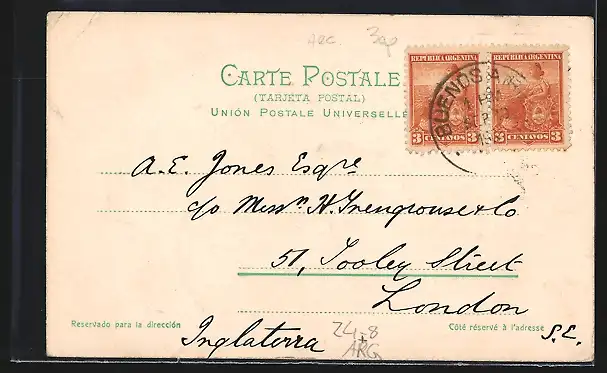 ARG. 3op
REPUBLICA ARGENTINA REPUBLICA ARGENTINA
CARTE POSTALE
(TARJETA POSTAL)
UNIÓN POSTALE UNIVERSELLE
BUENOS A
3 CENTAVOS 3 CENTAVOS 3
A. E. Jones Esqre
c/o Messrs H. Trengrouse & Co
51, Tooley Street
London
Reservado para la dirección
Côté réservé à l'adresse
S.E.
Inglaterra
24-8
ARG